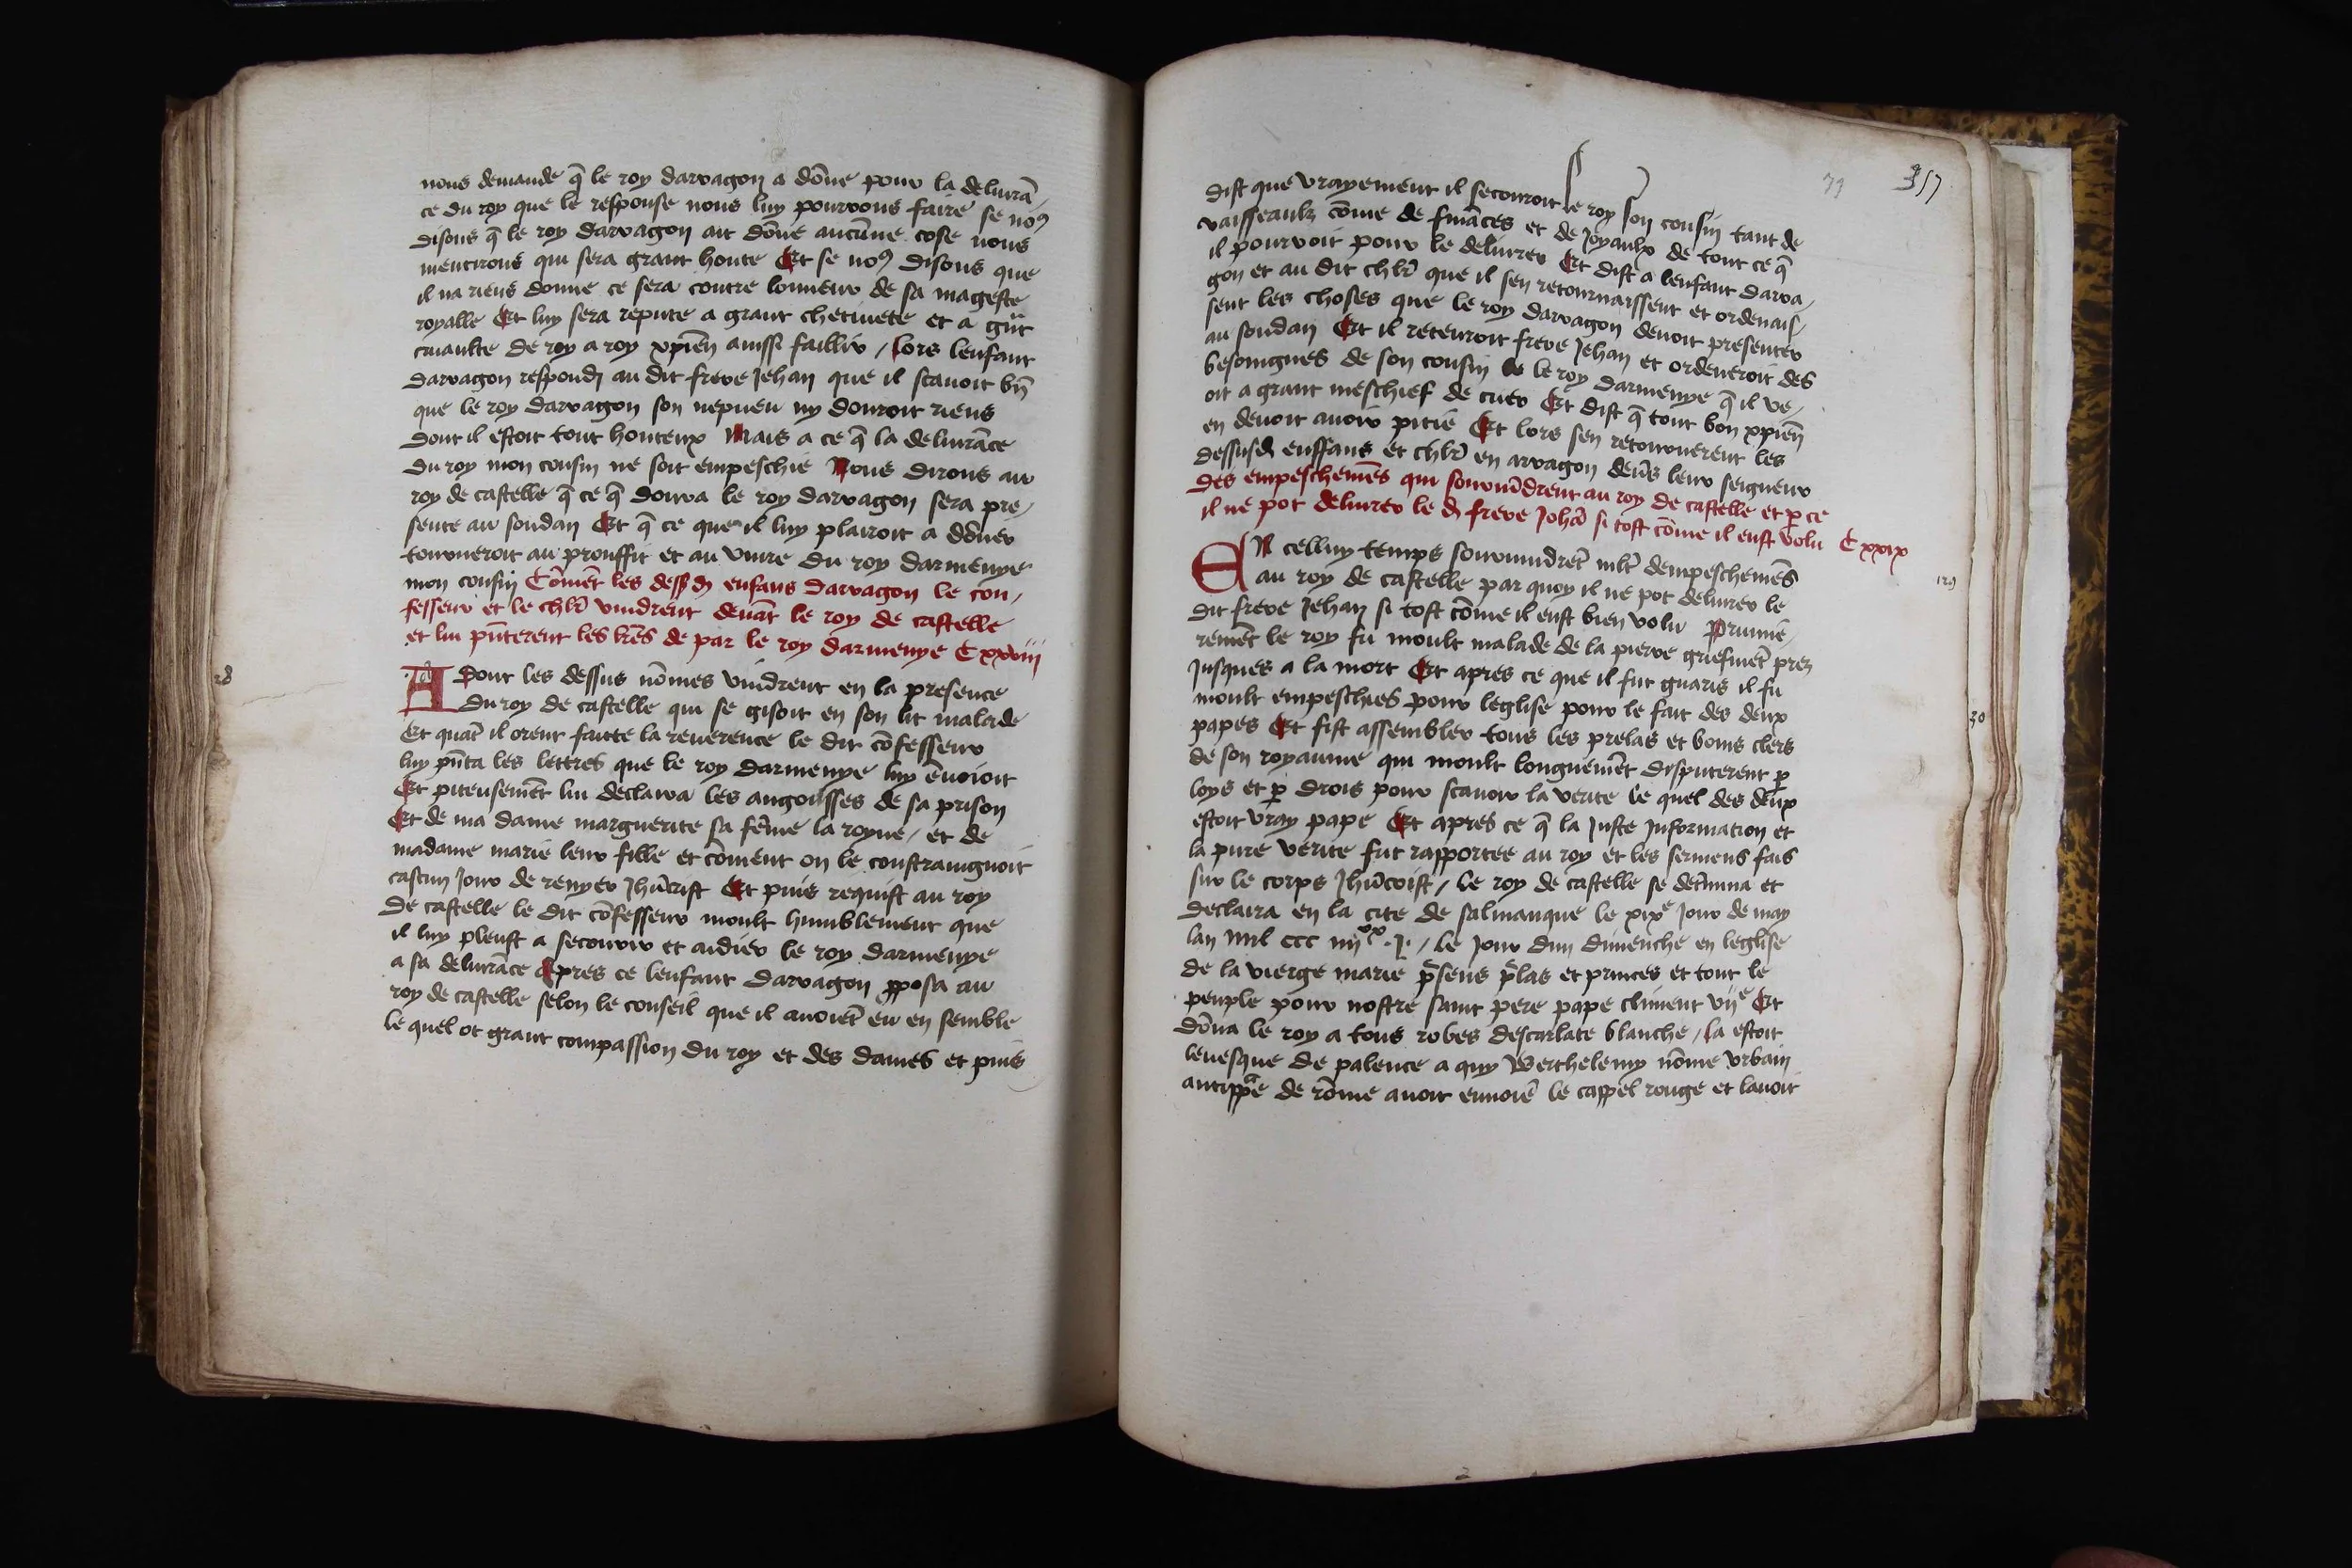 nous demande q̄ le roy darragon a dōne pour la deliurā
ce du roy que le response nous luy pourrons faire se noꝯ
disons q̄ le roy darragon ait dōne aucūne cose nous
mentirons qui sera grant honte Et se noꝯ disons que
il na riens donne ce sera contre lonneur de sa mageste
royalle Et luy sera repute a grant chetiuete et a gn̄t
cruaulte de roy a roy xpiēn ainssi faillir / lors lenfant
darragon respondj au dit frere Jehan que il scauoit bn̄
que le roy darragon son nepueu ny donroit riens
dont il estoit tout honteux Mais a ce q̄ la deliurāce
du roy mon cousin ne soit empeschie Nous dirons au
roy de castelle q̄ ce q̄ donra le roy darragon sera pre/
sente au soudan Et q̄ ce que il luy plairoit a dōner
tourneroit au prouffit et au viure du roy darmenye
mon cousin Cōmēt les dess dj enfans darragon le con/
fesseur et le chlr̄ vindrent deuāt le roy de castelle
et lui pn̄terent les lr̄es de par le roy darmenye C xxviii
28
ADont les dessus nōmes vindrent en la presence
du roy de castelle qui se gisoit en son lit malade
Et quāt il orent faitte la reuerence le dit cōfesseur
luy pn̄ta les lettres que le roy darmenye luy enuoioit
Et piteusemēt lui declaira les angousses de sa prison
Et de ma dame marguerite sa fēme la royne / et de
madame marie leur fille et cōment on le constraingnoit
cascun Jour de renyer Jhūcrist Et puis requist au roy
de castelle le dit cōfesseur moult humblement que
il luy pleust a secourir et aidier le roy darmenye
a sa deliurāce Apres ce lenfant darragon ꝓposa au
roy de castelle selon le conseil que il auoiēt eu en semble
le quel ot grant compassion du roy et des dames et puis
79 357
dist que vrayement il secouroit le roy son cousin tant de
vaisseaulz cōme de fināces et de Joyaulx de tout ce q̄
il pourroit pour le deliurer Et dist a lenfant darra/
gon et au dit chlr̄ que il sen retournaissent et ordenais/
sent les choses que le roy darragon deuoit presenter
au soudan Et il retenroit frere Jehan et ordeneroit des
besoingnes de son cousin le roy darmenye q̄ il ve/
oit a grant meschief de cuer Et dist q̄ tout bon xpiēn
en deuoit auoir pitie Et lors sen retournerent les
dessusdj enffans et chlr̄ en arragon deūs leur seigneur
des empeschemēs qui souruīdrent au roy de castelle et ꝑ ce
il ne pot deliurer le dj frere Johā si tost cōme il eust volu C xxix
EN celluy temps souruindrēt mlt̄ dempeschemēs
129
au roy de castelle par quoy il ne pot deliurer le
dit frere Jehan si tost cōme il eust bien volu Prumie/
remēt le roy fu moult malade de la pierre griefmēt prez
Jusques a la mort Et apres ce que il fut guaris il fu
moult empeschies pour leglise pour le fait des deux
30
papes Et fist assembler tous les prelas et boins clers
de son royaume qui moult longuemēt disputerent ꝑ
loys et ꝑ drois pour scauoir la verite le quel des deux
estoit vray pape Et apres ce q̄ la Juste Information et
la pure verite fut rapportee au roy et les sermens fais
sur le corps Jhūcrist / le roy de castelle se det̄mina et
declaira en la cite de salmanque le xixe Jour de may
lan mil ccc iiijxx .J. / le Jour dun dimenche en leglise
de la vierge marie p̄sens p̄las et princes et tout le
peuple pour nostre saint pere pape climent vije Et
dōna le roy a tous robes descarlate blanche / la estoit
leuesque de palence a quy Berthelemy nōme vrbain
antippāe de rōme auoit enuoié le cappel rouge et lauoit